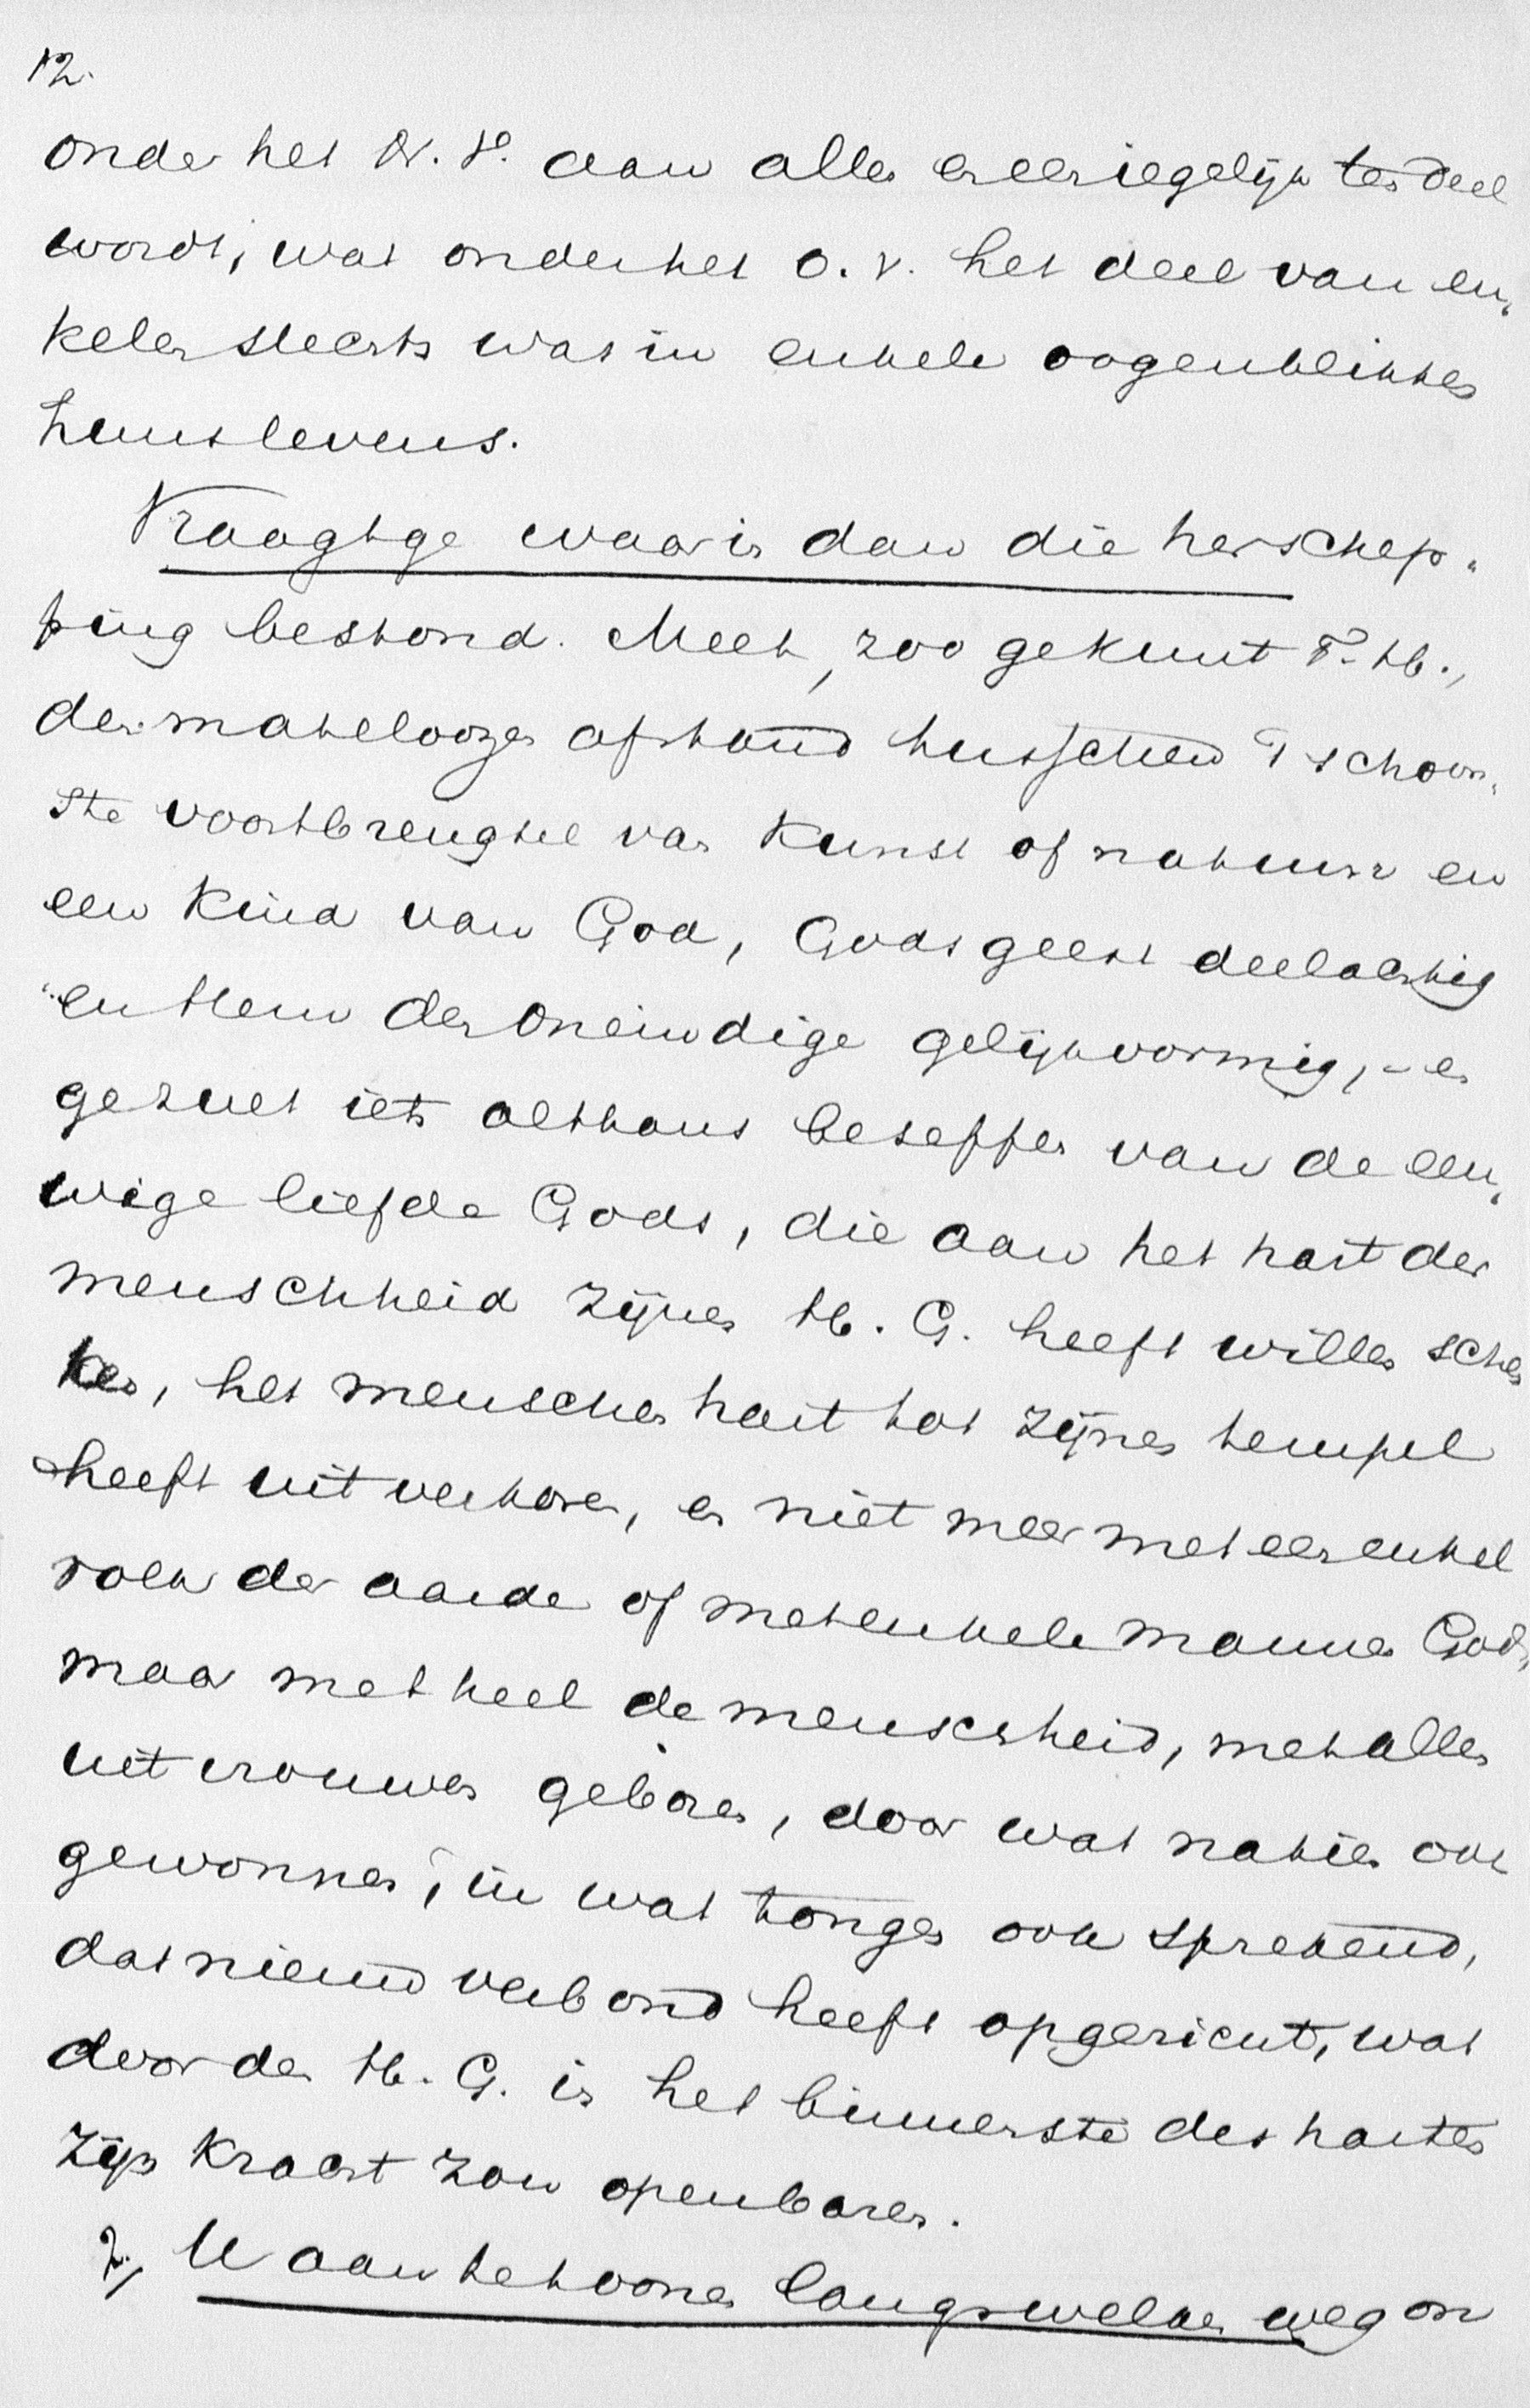 12.
onder het N. V. aan allen een iegelijk ten deel
wordt, wat onder het O. V. het deel van en„
kelen slechts was in enkele oogenblikken
huns levens.
Vraagt ge waarin dan die herschep„
ping bestond. Meet, zoo ge kunt T. H.,
den mateloozen afstand tusschen 't schoon„
ste voortbrengsel van kunst of natuur en
een kind van God, Gods geest deelachtig
en Hem den oneindige gelijkvormig, – en
ge zult iets althans beseffen van de eeu„
wige liefde Gods, die aan het hart der
menschheid zijnen H. G. heeft willen schen
ken, het menschen hart tot zijnen tempel
heeft uitverkoren, en niet meer met een enkel
volk der aarde of met enkele mannen Gods,
maar met heel de menschheid, met allen
uit vrouwen geboren, door wat natien ook
gewonnen, in wat tongen ook sprekend,
dat nieuw verbond heeft opgericht, wat
door den H. G. in het binnenste des harten
zijn kracht zou openbaren.
2, U aan te toonen langs welken weg on